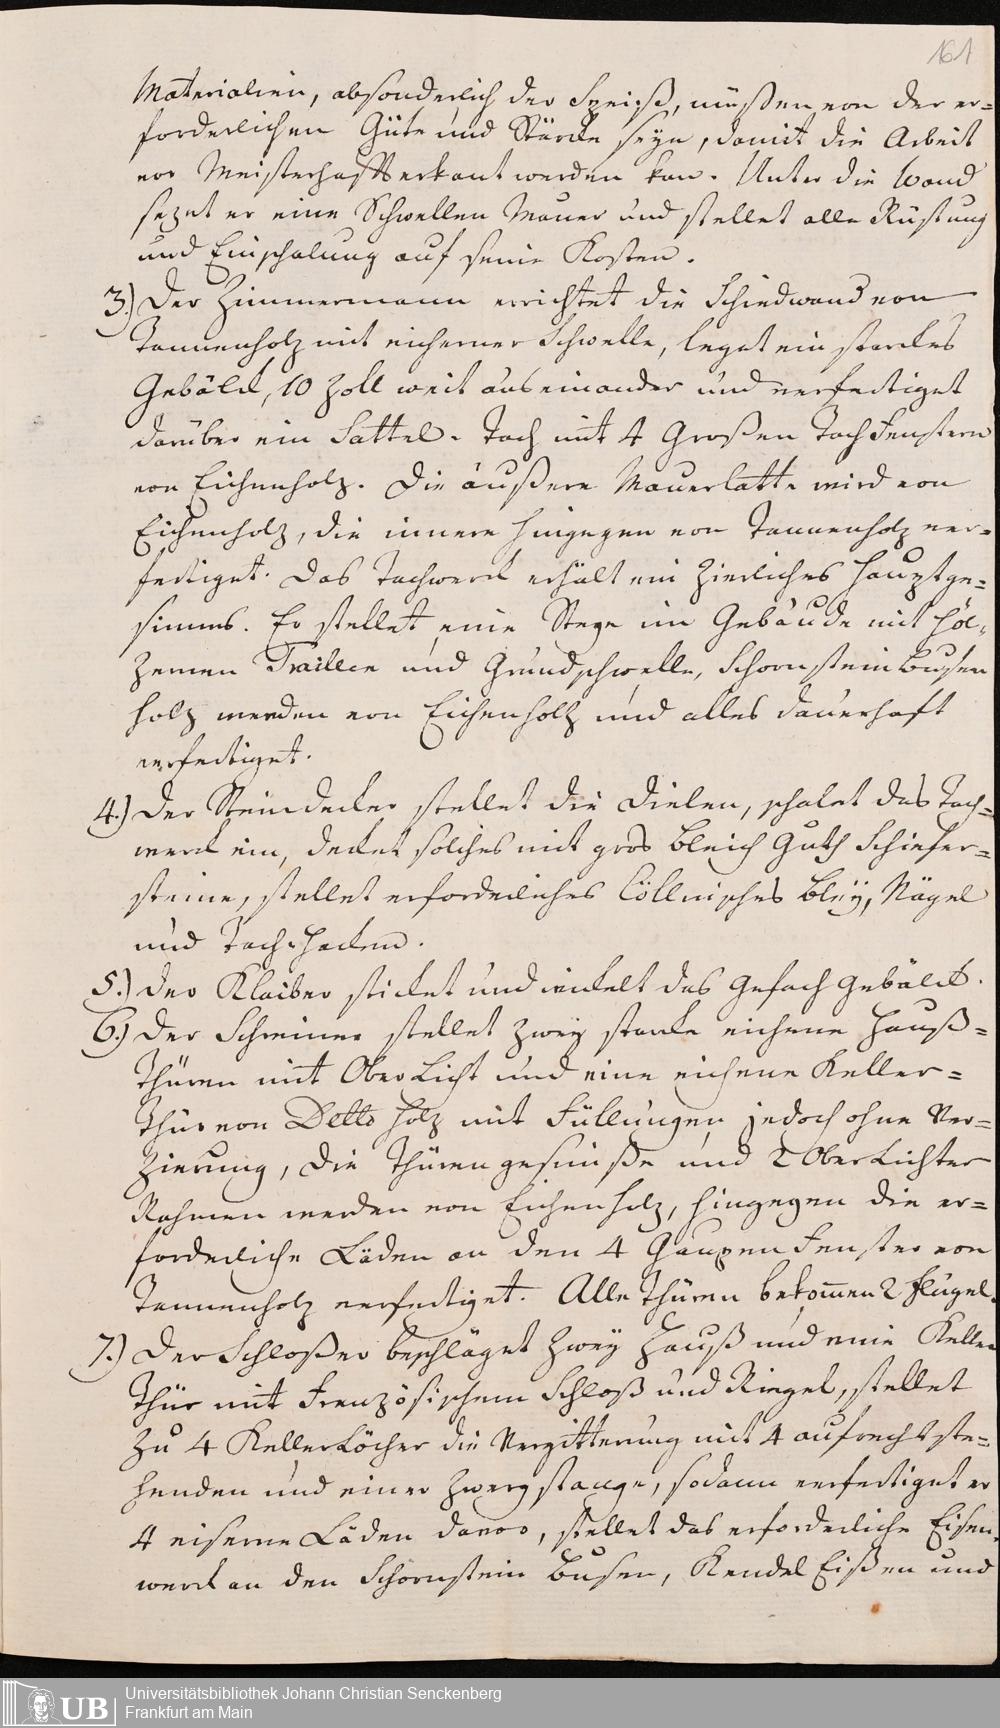 161
Materialien, absonderlich der Speiß, müßen von der er=
forderlichen Güte und Stärcke seyn, damit die Arbeit
vor Meisterhafft erkant werden kan. Unter die Wand
sezet er eine Schwellen Mauer und stellet alle Rüstung
und Einschalung auf seine Kosten.
3.) Der Zimmermann errichtet die Schiedwand von
Tannenholz mit eicherner Schwelle, leget ein starckes
Gebälck, 10 Zoll weit auseinander und verfertiget
darüber ein Sattel-Tach mit 4 Großen Tach Fenstern
von Eichenholz. Die äußere Mauerlatte wird von
Eichenholz, die innere hingegen von Tannenholz ver=
fertiget. Das Tachwerck erhält ein Zierliches Hauptge=
simms. Er stellet eine Stege im Gebäude mit Höl=
zernen Traillen und Grundschwelle, Schornstein Busen
holz werden von Eichenholtz und alles dauerhaft
verfertiget.
4.) Der Steindecker stellet die Dielen, schalet das Tach=
werck ein, decket solches mit gros bleich Guth Schiefer=
steine, stellet erforderliches Cöllnisches Bley, Nägel
und Tach-Hacken.
5.) Der Klaiber sticket und wickelt das Gefach Gebälck.
6.) Der Schreiner stellet zwey starcke eichene Hauß=
Thüren mit Ober Licht und eine eichene Keller=
Thür von Detto Holz mit Füllungen jedoch ohne Ver=
Zierung, die Thürengesimße und 2 Ober Lichter
Rahmen werden von Eichenholz, hingegen die er=
forderliche Läden an den 4 Gaupen Fenster von
Tannenholz verfertiget. Alle Thüren bekommen 2 Flügel.
7.) Der Schloßer beschläget zwey Hauß und eine Keller
Thür mit Französischem Schloß und Riegel, stellet
zu 4 Keller Löcher die Vergitterung mit 4 aufrecht ste=
henden und einer Zwergstange, sodann verfertiget er
4 eiserne Läden davor, stellet das erforderliche Eisen=
werck an den Schornstein Busen, Kendel Eißen und
UB
Universitätsbibliothek Johann Christian Senckenberg
Frankfurt am Main